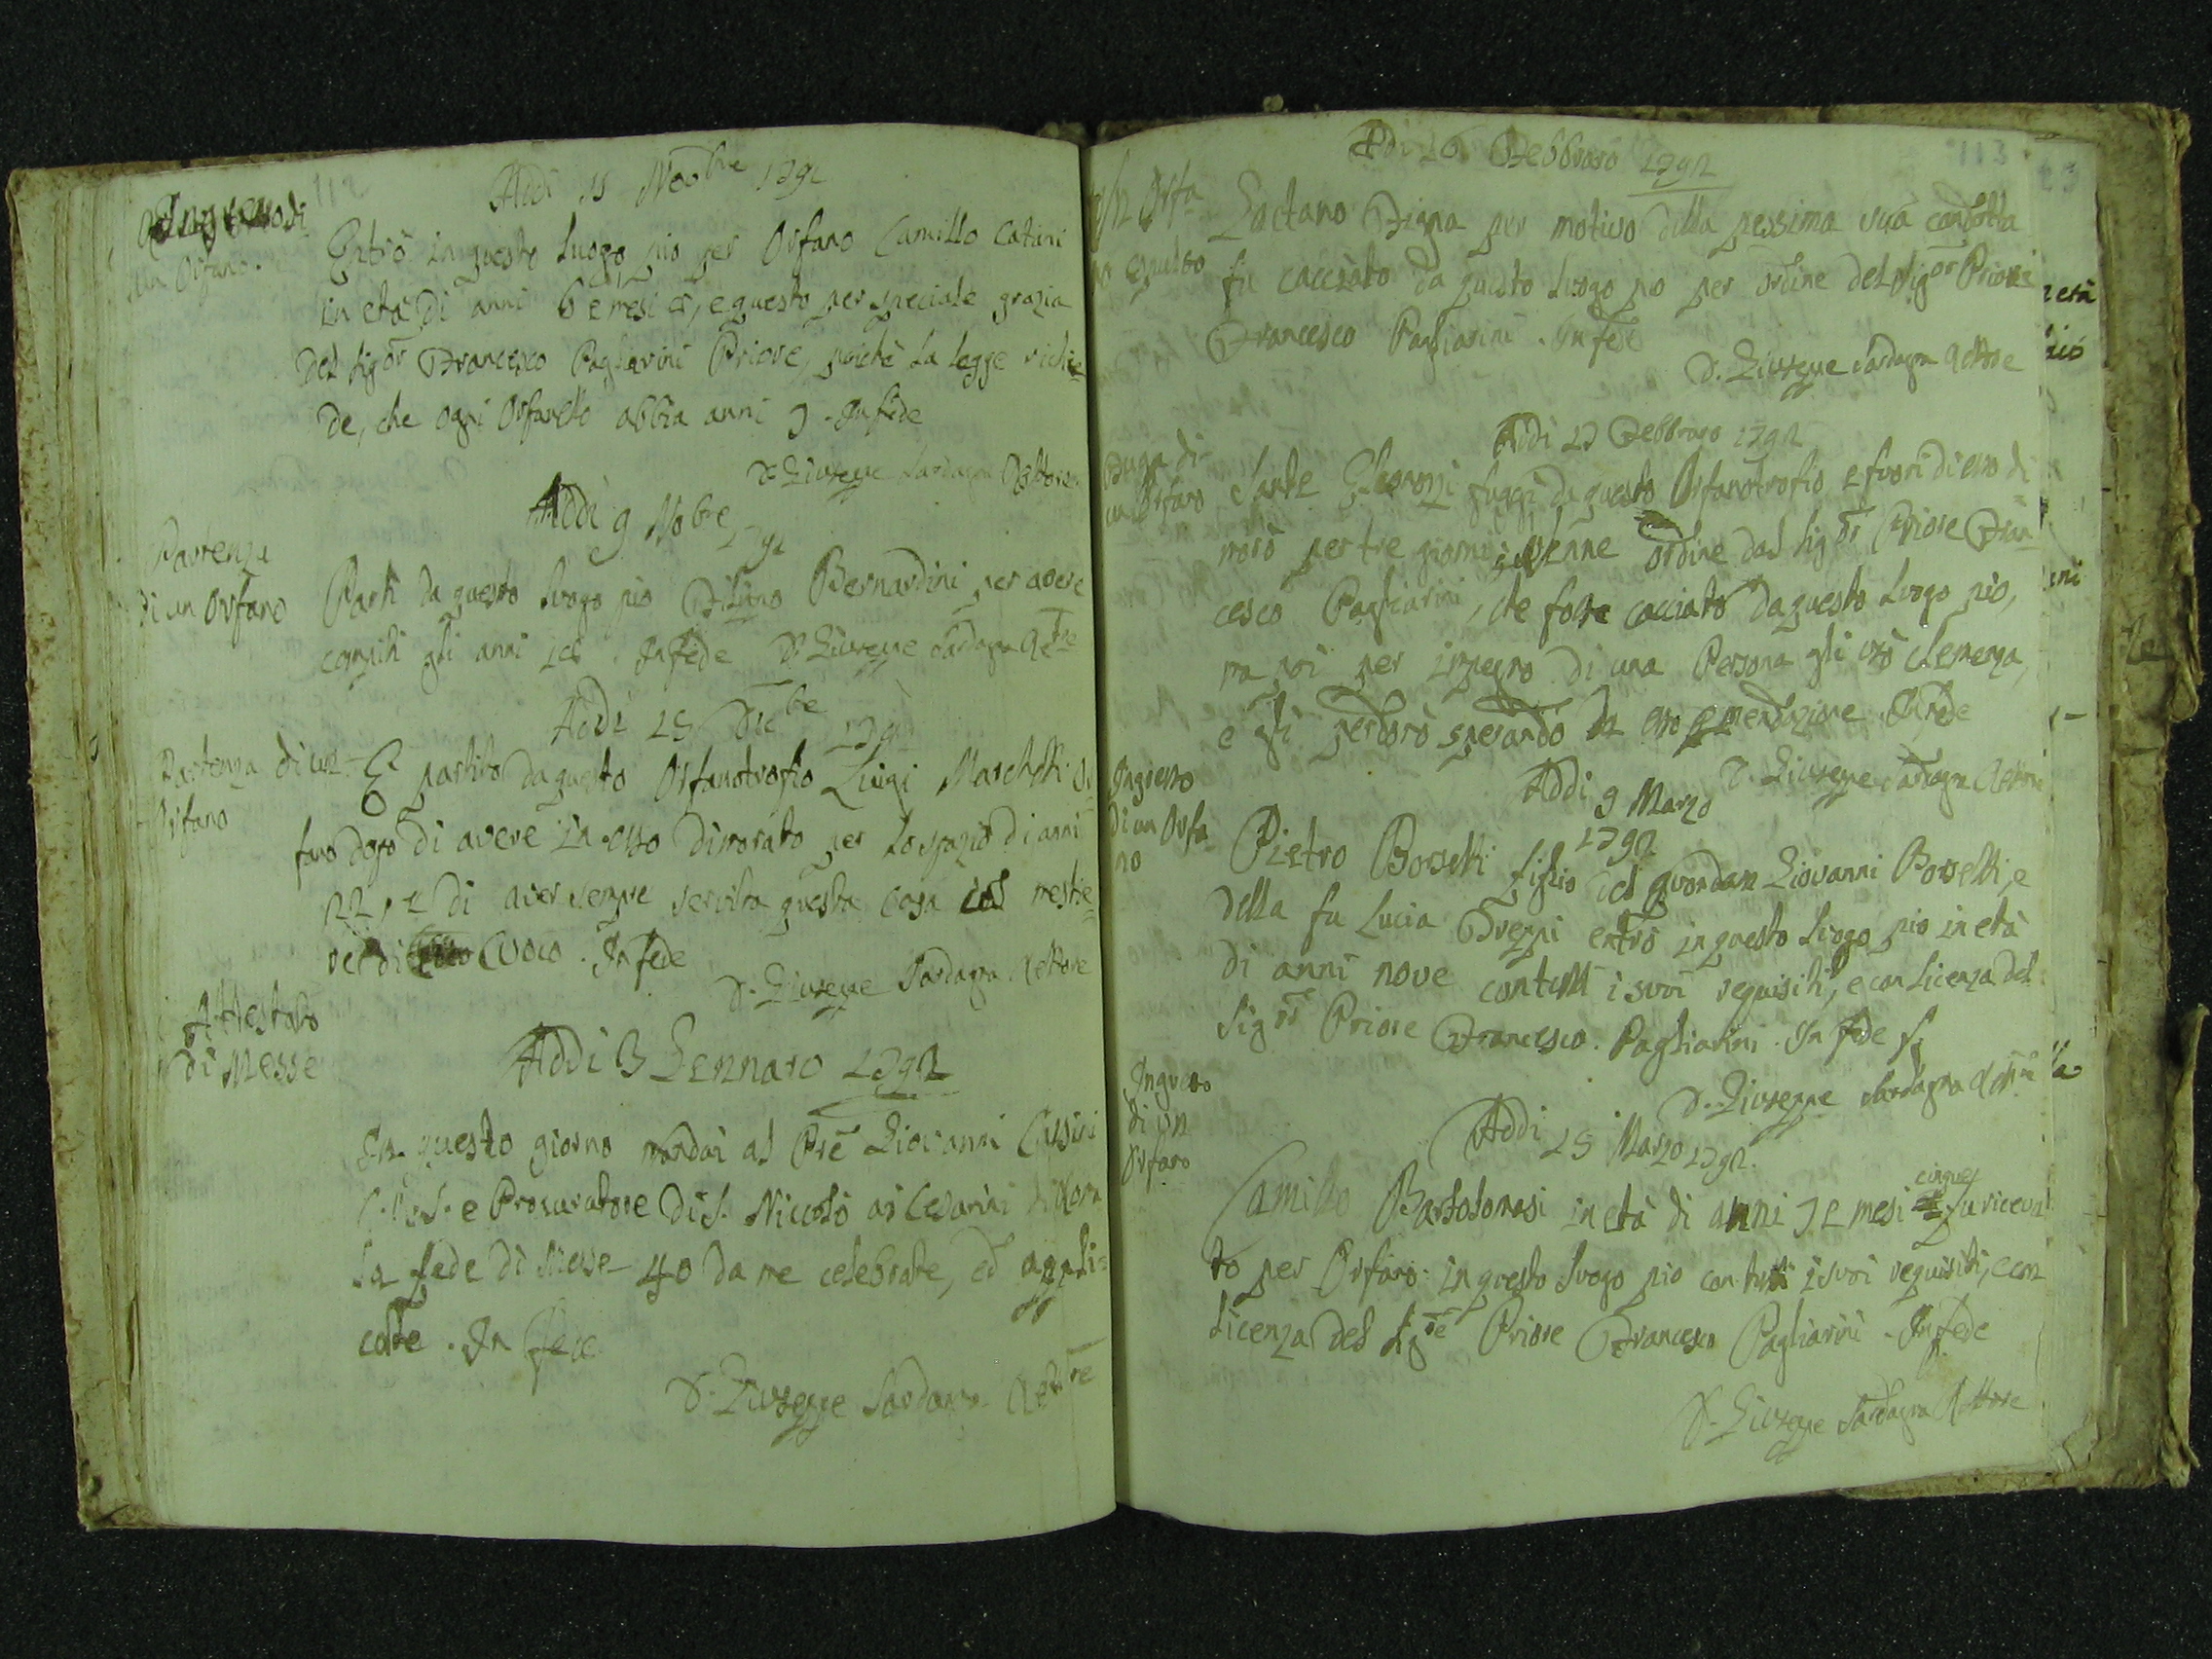 112
Ingresso di
un Orfano.
Addi 15 Novbre 1791
Entrò in questo luogo pio per Orfano Camillo Catini
in età di anni 6 e mesi 8, e questo per speciale grazia
del Sigor Francesco Pagliarini Priore, poichè la legge richie=
de, che ogni Orfanello abbia anni 7. In fede
D. Giuseppe Sardagna Rettore
Partenza
di un Orfano
Addi 9 Nobre 1791
Partì da questo luogo pio Bernardini per avere
compiti gli anni 18. In fede D. Giuseppe Sardagna Rettre
Partenza di un
Orfano
Addi 15 Dicbre 1791
È partito da questo Orfanotrofio Luigi Marchetti Or
fano dopo di avere in esso dimorato per lo spazio di anni
22, e di aver sempre servita questa Casa col mestie=
re di Cuoco. In fede
D. Giuseppe Sardagna Rettore
Attestato
di Messe
Addi 3 Gennaro 1792
In questo giorno mandai al Pre Giovanni Cassini
e Procuratore di S. Niccolò ai Cesarini di Roma
la fede di Messe 40 da me celebrate, ed appli=
cate. In fede
D. Giuseppe Sardagna Rettre
113
Addi 16 Febbraro 1792
un Orfa
no espulso
Gaetano Figna per motivo della pessima sua condotta
fu cacciato da questo luogo pio per ordine del Sigor Priore
Francesco Pagliarini. In fede
D. Giuseppe Sardagna Rettore
Addi 17 Febbraro 1792
Fuga di
un Orfano
Sante Eleonori fuggì da questo Orfanotrofio, e fuori di esso di=
morò per tre giorni; venne ordine dal Sigor Priore Fran=
cesco Pagliarini, che fosse cacciato da questo luogo pio,
ma poi per impegno di una Persona gli usò clemenza,
e gli perdonò sperando in esso emendazione. In fede
D. Giuseppe Sardagna Rettore
Ingresso
di un Orfa
no
Addi 9 Marzo
1792
Pietro Borselli figlio del quondam Giovanni Borselli, e
della fu Lucia entrò in questo luogo pio in età
di anni nove con tutti i suoi requisiti, e con licenza del
Sigor Priore Francesco Pagliarini. In fede
D. Giuseppe Sardagna
Ingresso
di un
Orfano
Addi 15 Marzo 1792.
Camillo Bartolomasi in età di anni 7 e mesi cinque fu ricevu
to per Orfano in questo luogo pio con tutti i suoi requisiti, e con
licenza del Sigre Priore Francesco Pagliarini. In fede
D. Giuseppe Sardagna Rettore